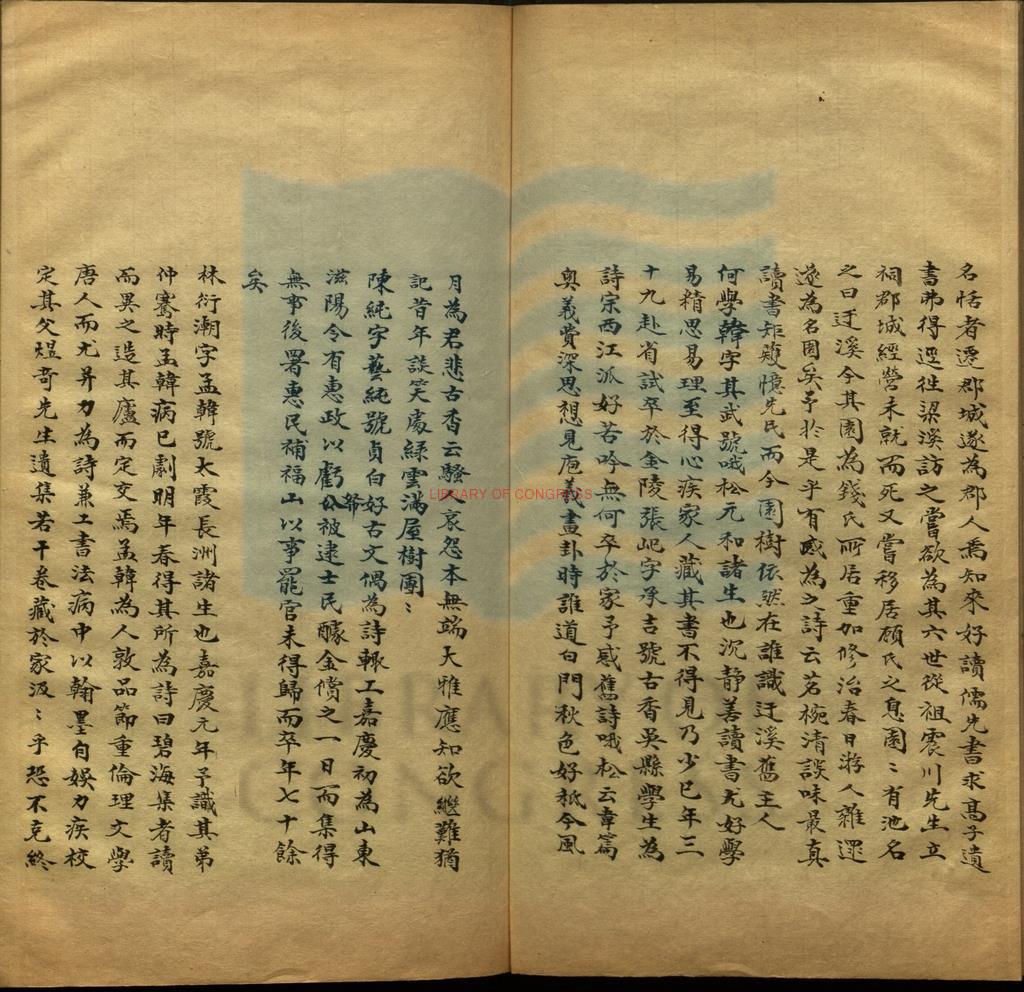 名恬者遷郡城遂為郡人焉知來好讀儒先書求高子遺
書弗得逕徃梁溪訪之嘗欲為其六世從祖震川先生立
祠郡城經營未就而死又嘗移居顧氏之息園〻有池名
之曰迂溪今其園為錢氏所居重加修治春日游人雜遝
遂為名園矣予於是乎有感為之詩云茗椀清談味最真
讀書矩矱憶先民而今園樹依然在誰識迂溪舊主人
何學韓字其武號哦松元和諸生也沉靜善讀書尤好學
易精思易理至得心疾家人藏其書不得見乃少已年三
十九赴省試卒於金陵張屺字承吉號古香吳縣學生為
詩宗西江派好苦吟無何卒於家予感舊詩哦松云章篇
奥義賞深思想見庖羲畫卦時誰道白門秋色好秪今風
月為君悲古香云騷人哀怨本無端大雅應知欲繼難猶
記昔年談笑處緑雲滿屋樹團〻
陳純字藝純號貞白好古文偶為詩輙工嘉慶初為山東
滋陽令有惠政以虧帑被逮士民醵金償之一日而集得
無事後署惠民補福山以事罷官未得歸而卒年七十餘
矣
林衍潮字孟韓號太霞長洲諸生也嘉慶元年予識其弟
仲騫時孟韓病已劇明年春得其所為詩曰碧海集者讀
而異之造其廬而定交焉孟韓為人敦品節重倫理文學
唐人而尤并力為詩兼工書法病中以翰墨自娛力疾校
定其父煜奇先生遺集若干卷藏於家汲〻乎恐不克終
LIBRARY OF CONGRESS